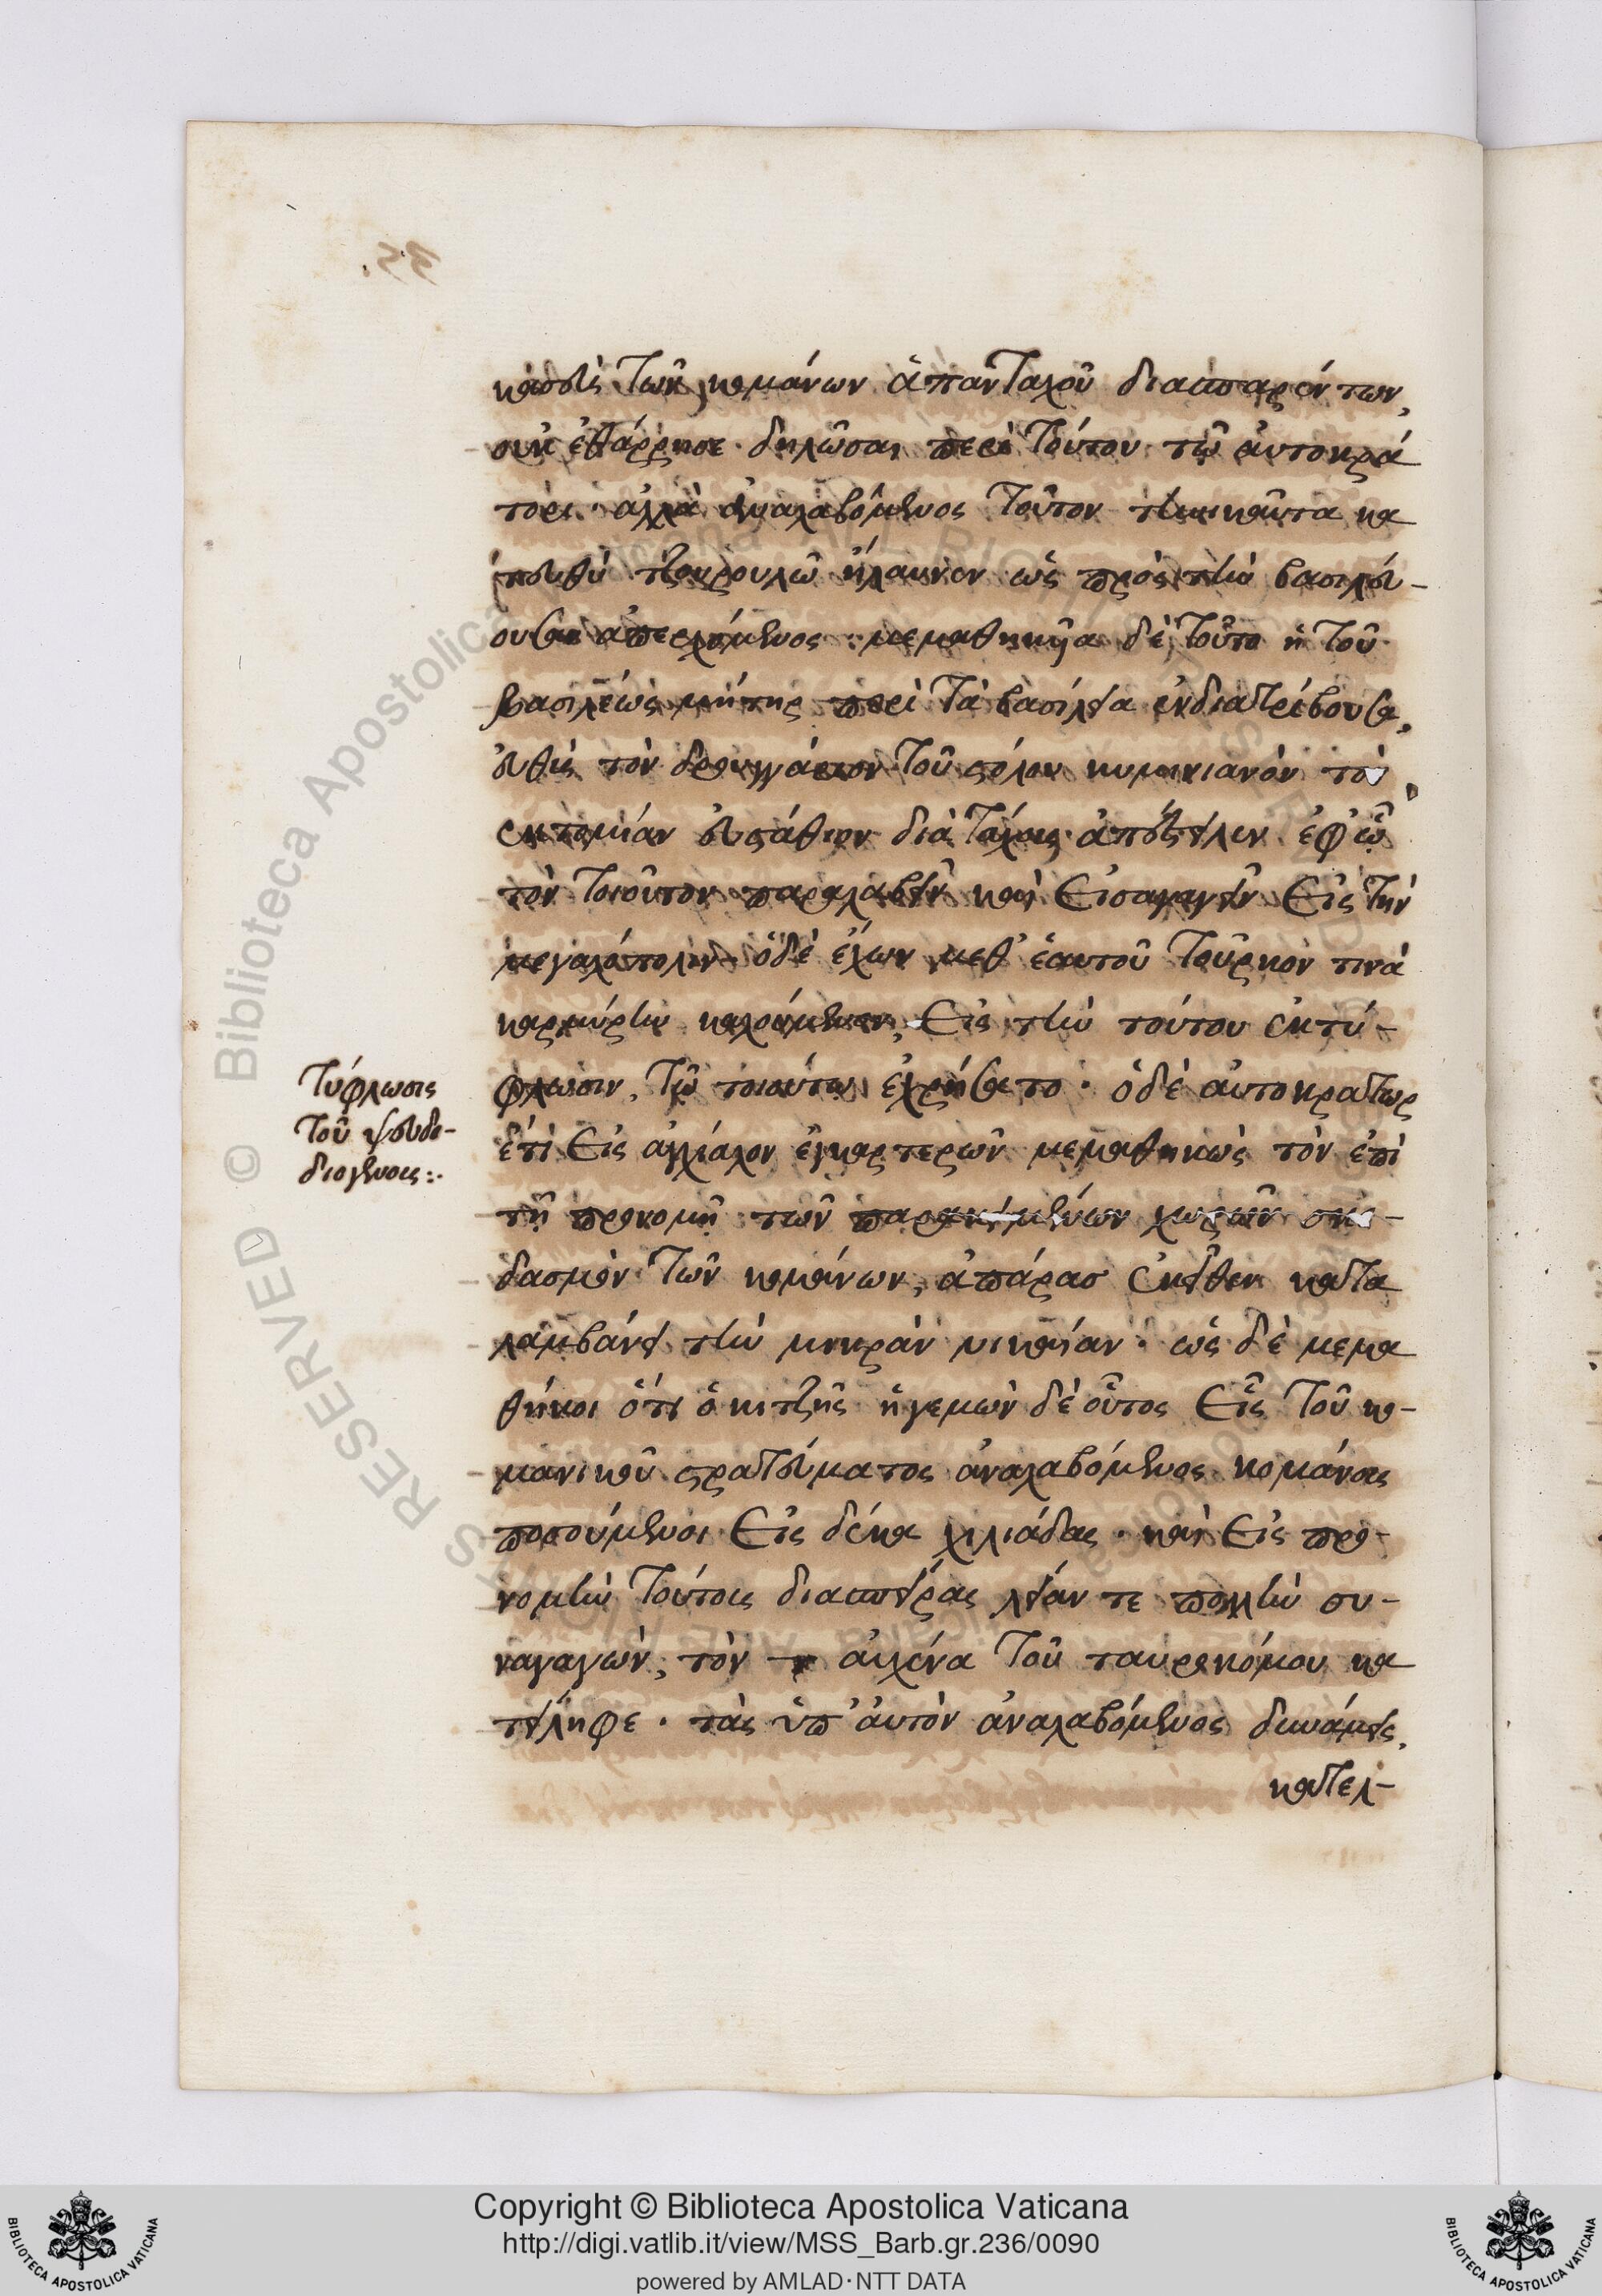 35.
κασδὶς τῶν κομάνων ἁπανταχοῦ διασπαρέντων,
οὐκ ἐθάρρησε δηλῶσαι περὶ τούτου τῷ αὐτοκρά
τορι· ἀλλὰ ἀναλαβόμενος τοῦτον τηνικαῦτα κα
πευθὺ τζουρουλοῦ ἤλαυνεν ὡς πρὸς τὴν βασιλεύ-
ουσαν ἀπερχόμενος· μεμαθηκυῖα δὲ τοῦτο ἡ τοῦ
βασιλέως μήτηρ περὶ τὰ βασίλεια ἐνδιατρίβουσα,
εὐθὺς τὸν δρουγγάριον τοῦ στόλου κυμινιανὸν τὸν
ἐκτομίαν εὐστάθιον διὰ τάχους ἀπέστειλεν ἐφ' ᾧ
τὸν τοιοῦτον παραλαβεῖν καὶ εἰσαγαγεῖν εἰς τὴν
μεγαλόπολιν· ὁ δὲ ἔχων μεθ' ἑαυτοῦ τοῦρκον τινὰ
καμύρην καλούμενον, εἰς τὴν τούτου ἐκτύ-
φλωσιν, τῷ τοιούτῳ ἐχρήσατο· ὁ δὲ αὐτοκράτωρ
ἔτι εἰς ἀγχίαλον ἐγκαρτερῶν μεμαθηκὼς τὸν ἐπὶ
τῇ προνομῇ τῶν παρακειμένων χωρῶν σκε-
δασμὸν τῶν κομάνων, ἀπάρας ἐκεῖθεν κατα
λαμβάνει τὴν μικρὰν νικαίαν· ὡς δὲ μεμα
θήκοι ὅτι ὁ κιτζῆς ἡγεμὼν δὲ οὗτος εἷς τοῦ κο-
μανικοῦ στρατεύματος ἀναλαβόμενος κομάνους
ποσούμενοι εἰς δέκα χιλιάδας· καὶ εἰς προ-
νομὴν τούτους διασπείρας λείαν τε πολλὴν συ-
ναγαγὼν, τὸν αὐχένα τοῦ ταυροκόμου κα
τείληφε· τὰς ὑπ' αὐτὸν ἀναλαβόμενος δυνάμεις,
κατελ-
τύφλωσις
τοῦ ψευδο-
διογένους:·
Copyright © Biblioteca Apostolica Vaticana
http://digi.vatlib.it/view/MSS_Barb.gr.236/0090
powered by AMLAD·NTT DATA
BIBLIOTECA APOSTOLICA VATICANA
BIBLIOTECA APOSTOLICA VATICANA